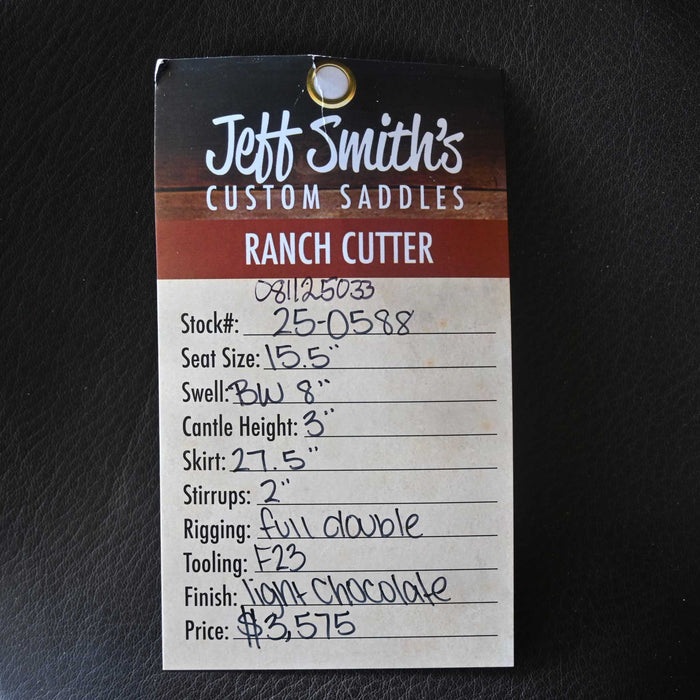 Jeff Smith's
CUSTOM SADDLES
RANCH CUTTER
081125033
Stock#: 25-0588
Seat Size: 15.5"
Swell: BW 8"
Cantle Height: 3"
Skirt: 27.5"
Stirrups: 2"
Rigging: full double
Tooling: F23
Finish: light chocolate
Price: $3,575